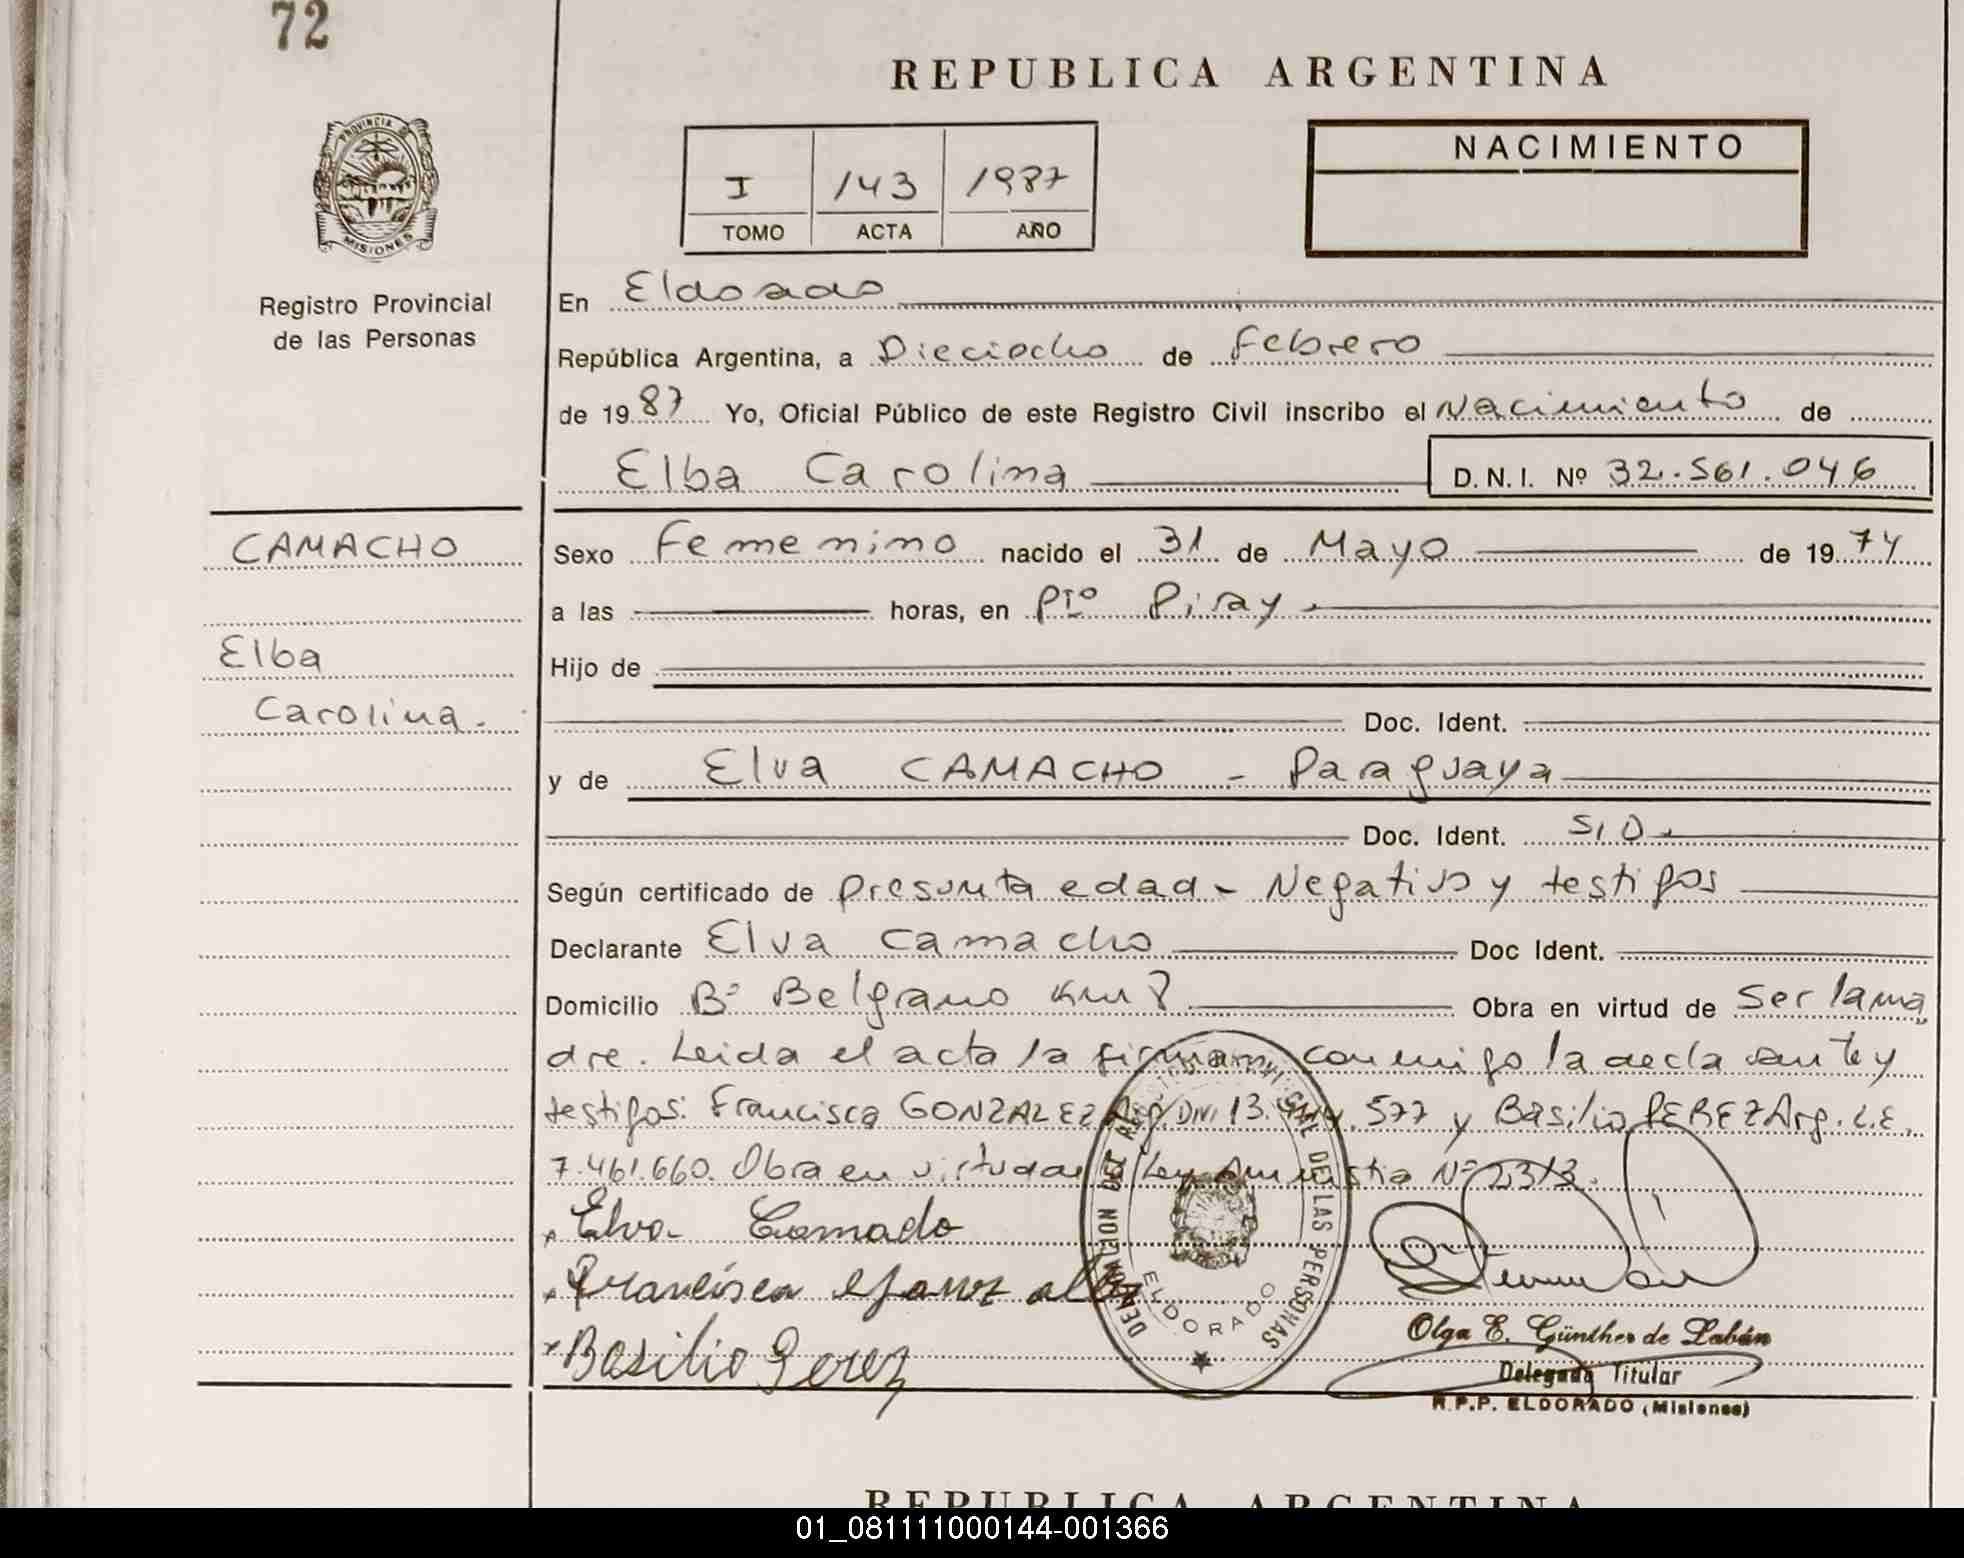 72
REPUBLICA ARGENTINA
PROVINCIA DE
MISIONES
Registro Provincial
de las Personas
I 143 1987
TOMO ACTA AÑO
NACIMIENTO
En Eldorado
República Argentina, a Dieciocho de Febrero
de 1987 Yo, Oficial Público de este Registro Civil inscribo el Nacimiento de
Elba Carolina D.N.I. Nº 32.561.046
CAMACHO
Elba
Carolina.
Sexo Femenino nacido el 31 de Mayo de 1974
a las horas, en Pto Piray.
Hijo de
Doc. Ident.
y de Elva CAMACHO - Paraguaya
Doc. Ident. S/D.
Según certificado de presunta edad - Negativo y testigos
Declarante Elva Camacho Doc Ident.
Domicilio Bº Belgrano Km 8 Obra en virtud de ser la ma
dre. Leida el acta la firman conmigo la declarante y
testigos: Francisca GONZALEZ Arg. DNI 13. .577 y Basilio PEREZ Arg. L.E.
7.461.660. Obra en virtud de Ley Amnistia Nº 2313.
Elva Camado
Francisca Gonzalez
Basilio Perez
DEL NORTE DEL REGISTRO PROVINCIAL DE LAS PERSONAS
ELDORADO
Olga E. Günther de Labán
Delegada Titular
R.P.P. ELDORADO (Misiones)
REPUBLICA ARGENTINA
01_081111000144-001366